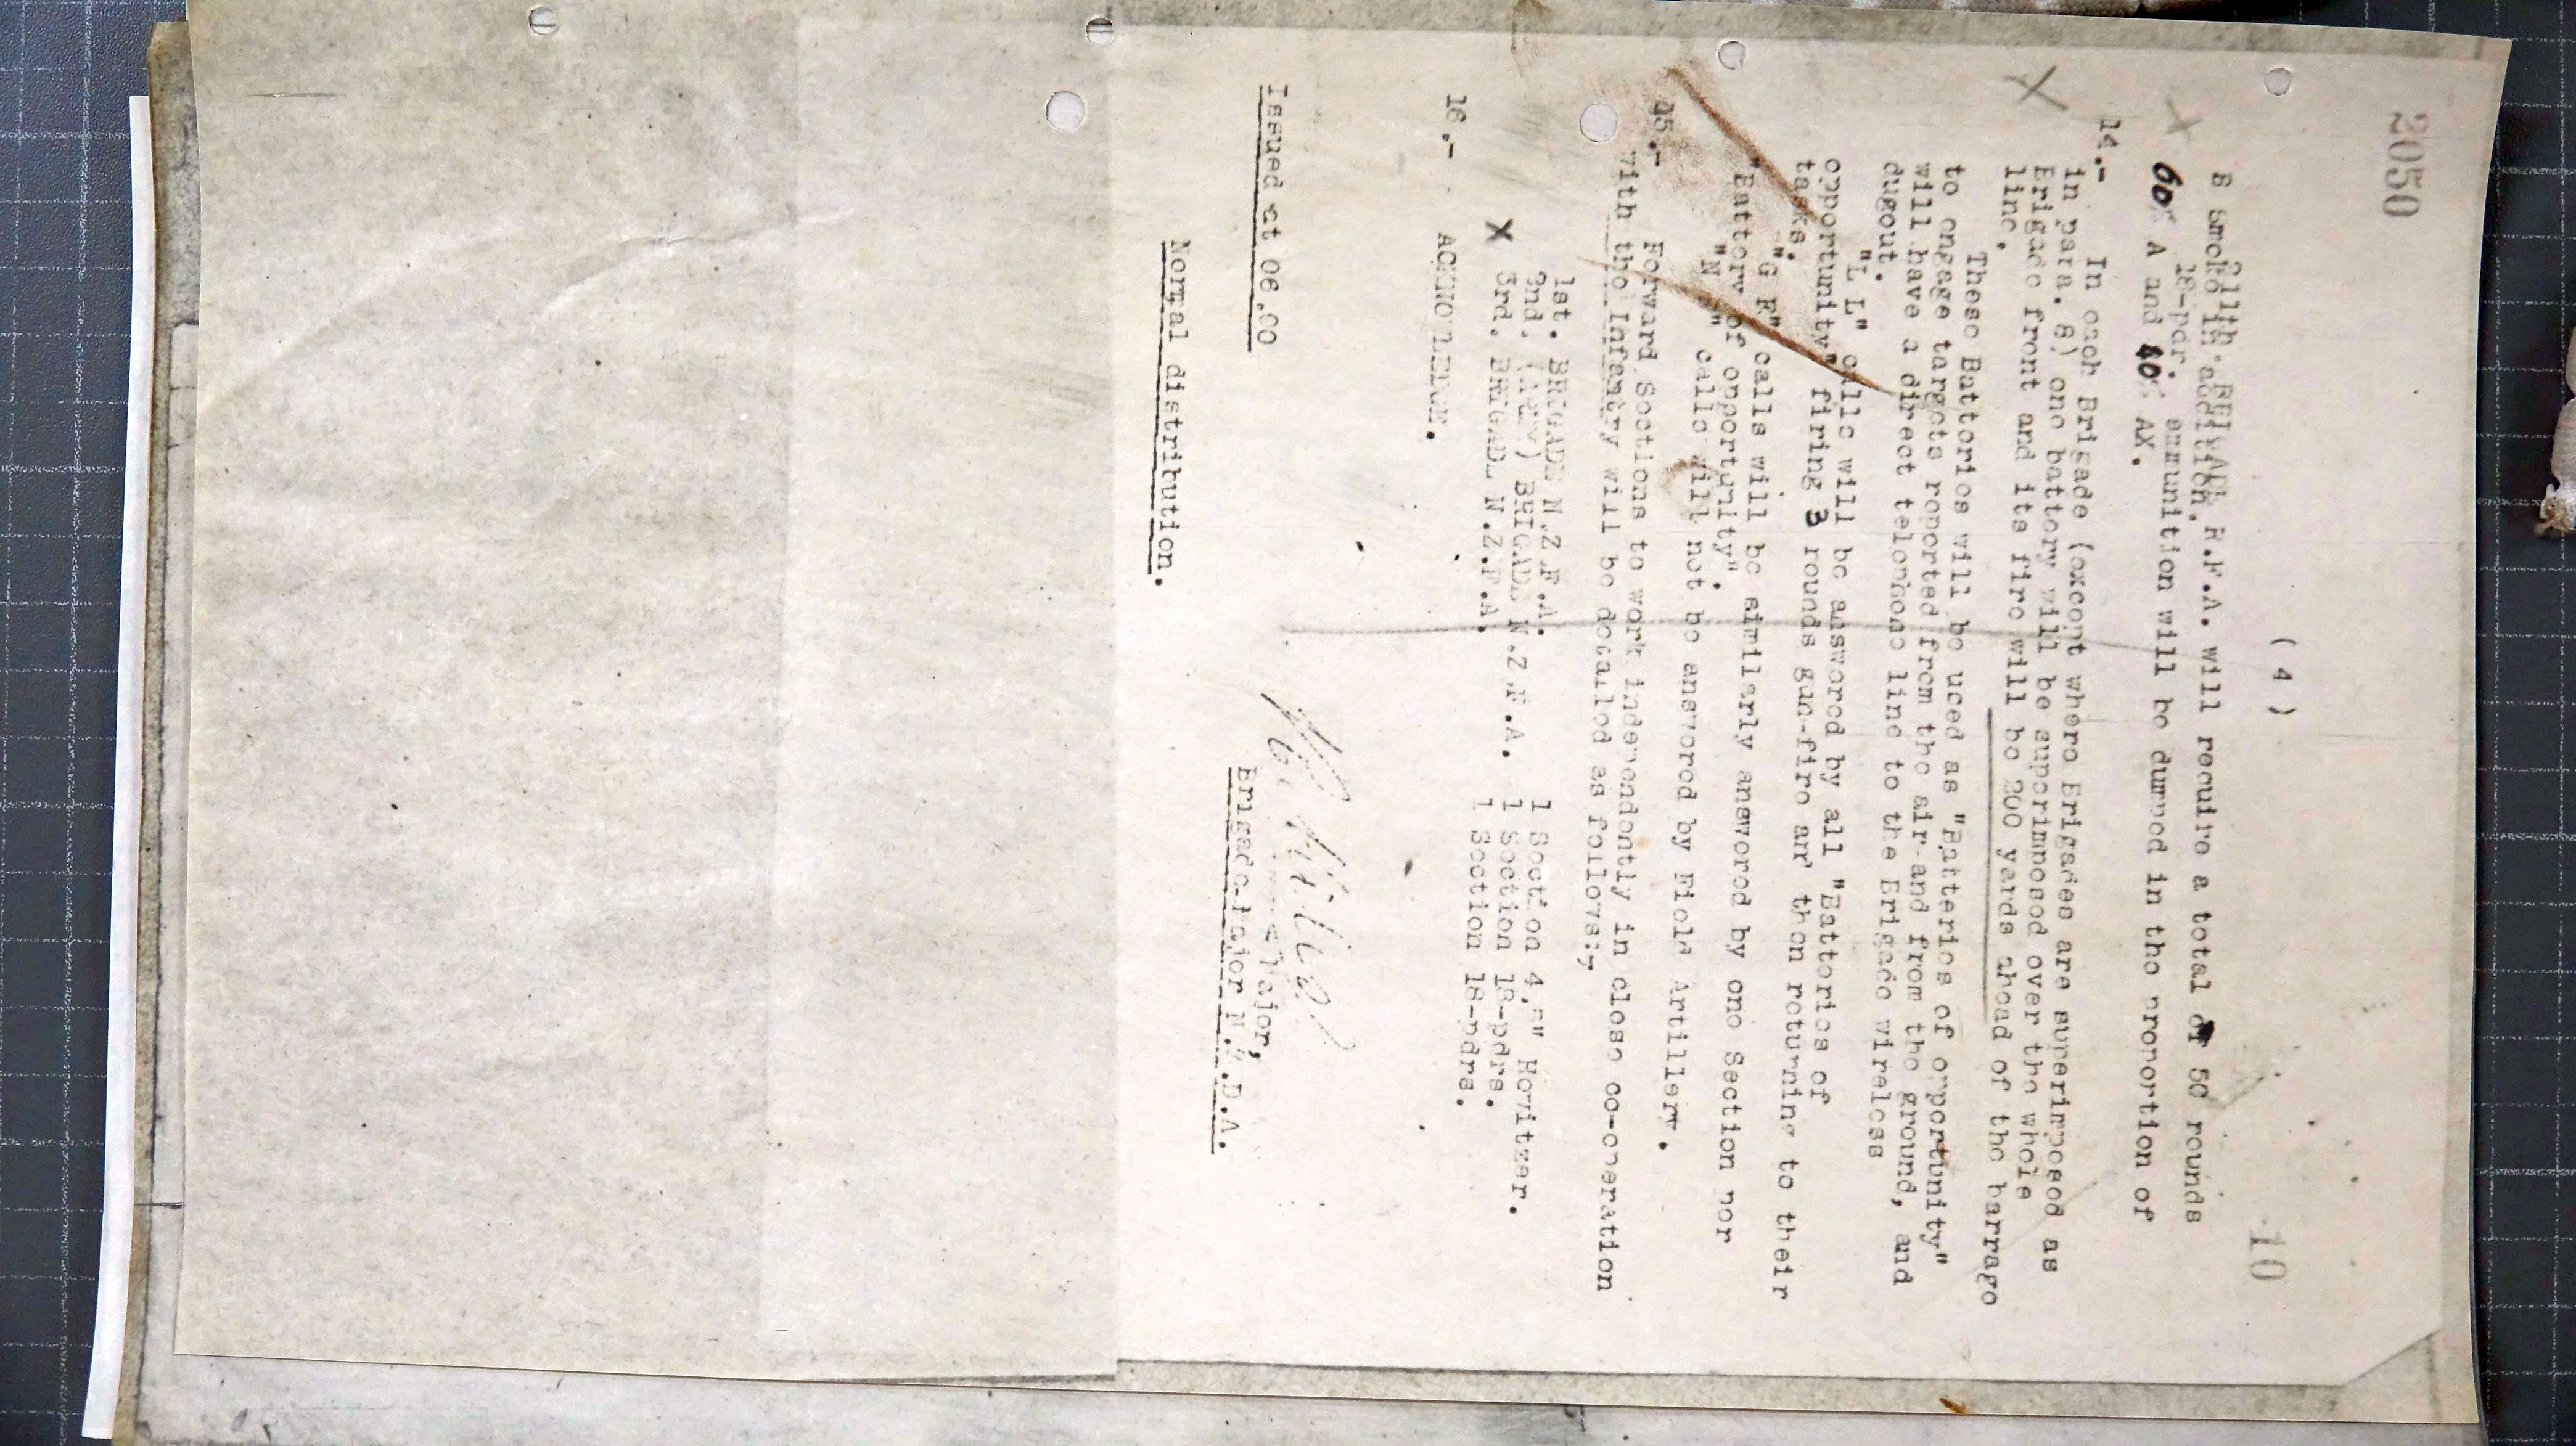 2050
( 4 )
10
211th. BRIGADE R.F.A. will require a total of 50 rounds
B smoke in addition.
18-pdr. ammunition will be dumped in the proportion of
60% A and 40% AX.
14.- In each Brigade (except where Brigades are superimposed as
in para. 8) one battery will be superimposed over the whole
Brigade front and its fire will be 200 yards ahead of the barrage
line.
These Batteries will be used as "Batteries of opportunity"
to engage targets reported from the air and from the ground, and
will have a direct telephone line to the Brigade wireless
dugout.
"L L" calls will be answered by all "Batteries of
opportunity" firing 3 rounds gun-fire and then returning to their
tasks.
"G F" calls will be similarly answered by one Section per
"Battery of opportunity".
"N F" calls will not be answered by Field Artillery.
15.- Forward Sections to work independently in close co-operation
with the Infantry will be detailed as follows:-
1st. BRIGADE N.Z.F.A. 1 Section 4.5" Howitzer.
2nd. (ARMY) BRIGADE N.Z.F.A. 1 Section 18-pdrs.
X 3rd. BRIGADE N.Z.F.A. 1 Section 18-pdrs.
16.- ACKNOWLEDGE.
Major,
Issued at 06.00 Brigade-Major N.Z.D.A.
Normal distribution.